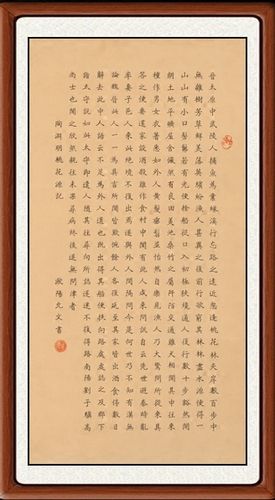 晉太原中武陵人捕魚為業緣溪行忘路之遠近忽逢桃花林夾岸數百步中
無雜樹芳草鮮美落英繽紛漁人甚異之復前行欲窮其林林盡水源便得一
山山有小口髣髴若有光便捨船從口入初極狹纔通人復行數十步豁然開
朗土地平曠屋舍儼然有良田美池桑竹之屬阡陌交通雞犬相聞其中往來
種作男女衣著悉如外人黃髮垂髫並怡然自樂見漁人乃大驚問所從來具
答之便要還家設酒殺雞作食村中聞有此人咸來問訊自云先世避秦時亂
率妻子邑人來此絕境不復出焉遂與外人間隔問今是何世乃不知有漢無
論魏晉此人一一為具言所聞皆歎惋餘人各復延至其家皆出酒食停數日
辭去此中人語云不足為外人道也既出得其船便扶向路處處誌之及郡下
詣太守說如此太守即遣人隨其往尋向所誌遂迷不復得路南陽劉子驥高
尚士也聞之欣然親往未果尋病終後遂無問津者
陶淵明桃花源記
歐陽允文書